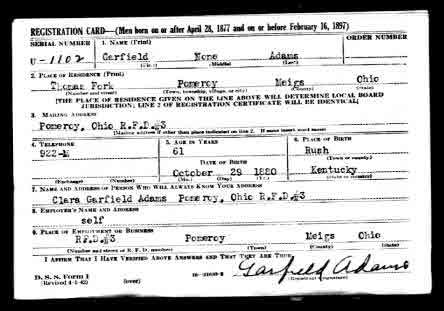 REGISTRATION CARD—(Men born on or after April 28, 1877 and on or before February 16, 1897)
SERIAL NUMBER 1. NAME (Print) ORDER NUMBER
U-1102 Garfield None Adams
(First) (Middle) (Last)
2. PLACE OF RESIDENCE (Print)
Thomas Fork Pomeroy Meigs Ohio
(Number and street) (Town, township, village, or city) (County) (State)
[THE PLACE OF RESIDENCE GIVEN ON THE LINE ABOVE WILL DETERMINE LOCAL BOARD
JURISDICTION; LINE 2 OF REGISTRATION CERTIFICATE WILL BE IDENTICAL]
3. MAILING ADDRESS
Pomeroy, Ohio R.F.D.#3
[Mailing address if other than place indicated on line 2. If same insert word same]
4. TELEPHONE 5. AGE IN YEARS 6. PLACE OF BIRTH
922-M 61 Rush
DATE OF BIRTH (Town or county)
October 29 1880 Kentucky
(Exchange) (Number) (Mo.) (Day) (Yr.) (State or country)
7. NAME AND ADDRESS OF PERSON WHO WILL ALWAYS KNOW YOUR ADDRESS
Clara Garfield Adams Pomeroy, Ohio R.F.D.#3
8. EMPLOYER'S NAME AND ADDRESS
self
9. PLACE OF EMPLOYMENT OR BUSINESS
R.F.D.#3 Pomeroy Meigs Ohio
(Number and street or R. F. D. number) (Town) (County) (State)
I AFFIRM THAT I HAVE VERIFIED ABOVE ANSWERS AND THAT THEY ARE TRUE.
D. S. S. Form 1
(Revised 4-1-42) (over) Garfield Adams
(Registrant's signature)